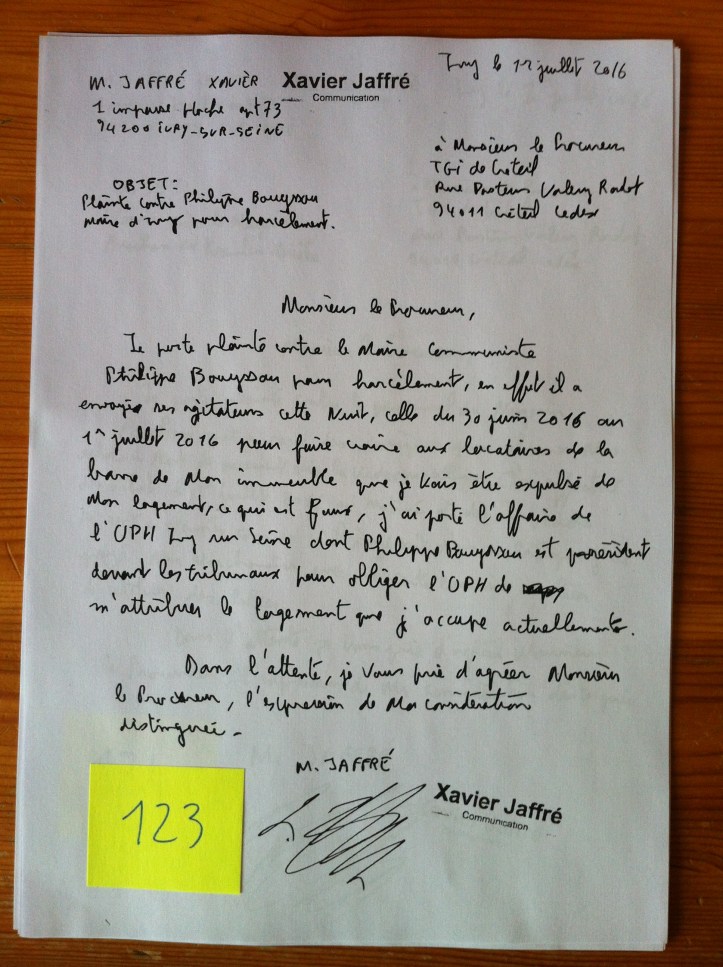 M. JAFFRÉ XAVIÈR
Xavier Jaffré
Communication
Ivry le 12 juillet 2016
1 impasse apt 73
94200 IVRY-SUR-SEINE
à Monsieur le Procureur
TGi de Créteil
Rue Pasteur Valery Radot
94011 Créteil Cedex
OBJET:
Plainte contre Philippe Bouyssou
maire d'Ivry pour harcèlement.
Monsieur le Procureur,
Je porte plainte contre le Maire Communiste
Philippe Bouyssou pour harcèlement, en effet il a
envoyé ses agitateurs cette Nuit, celle du 30 juin 2016 au
1er juillet 2016 pour faire croire aux locataires de la
barre de Mon immeuble que je vais être expulsé de
Mon logement, ce qui est faux, j'ai porté l'affaire de
l'OPH Ivry sur Seine dont Philippe Bouyssou est président
devant les tribunaux pour obliger l'OPH de
m'attribuer le logement que j'occupe actuellement.
Dans l'attente, je Vous prie d'agréer Monsieur
le Procureur, l'expression de Ma considération
distinguée.
M. JAFFRÉ
Xavier Jaffré
Communication
123